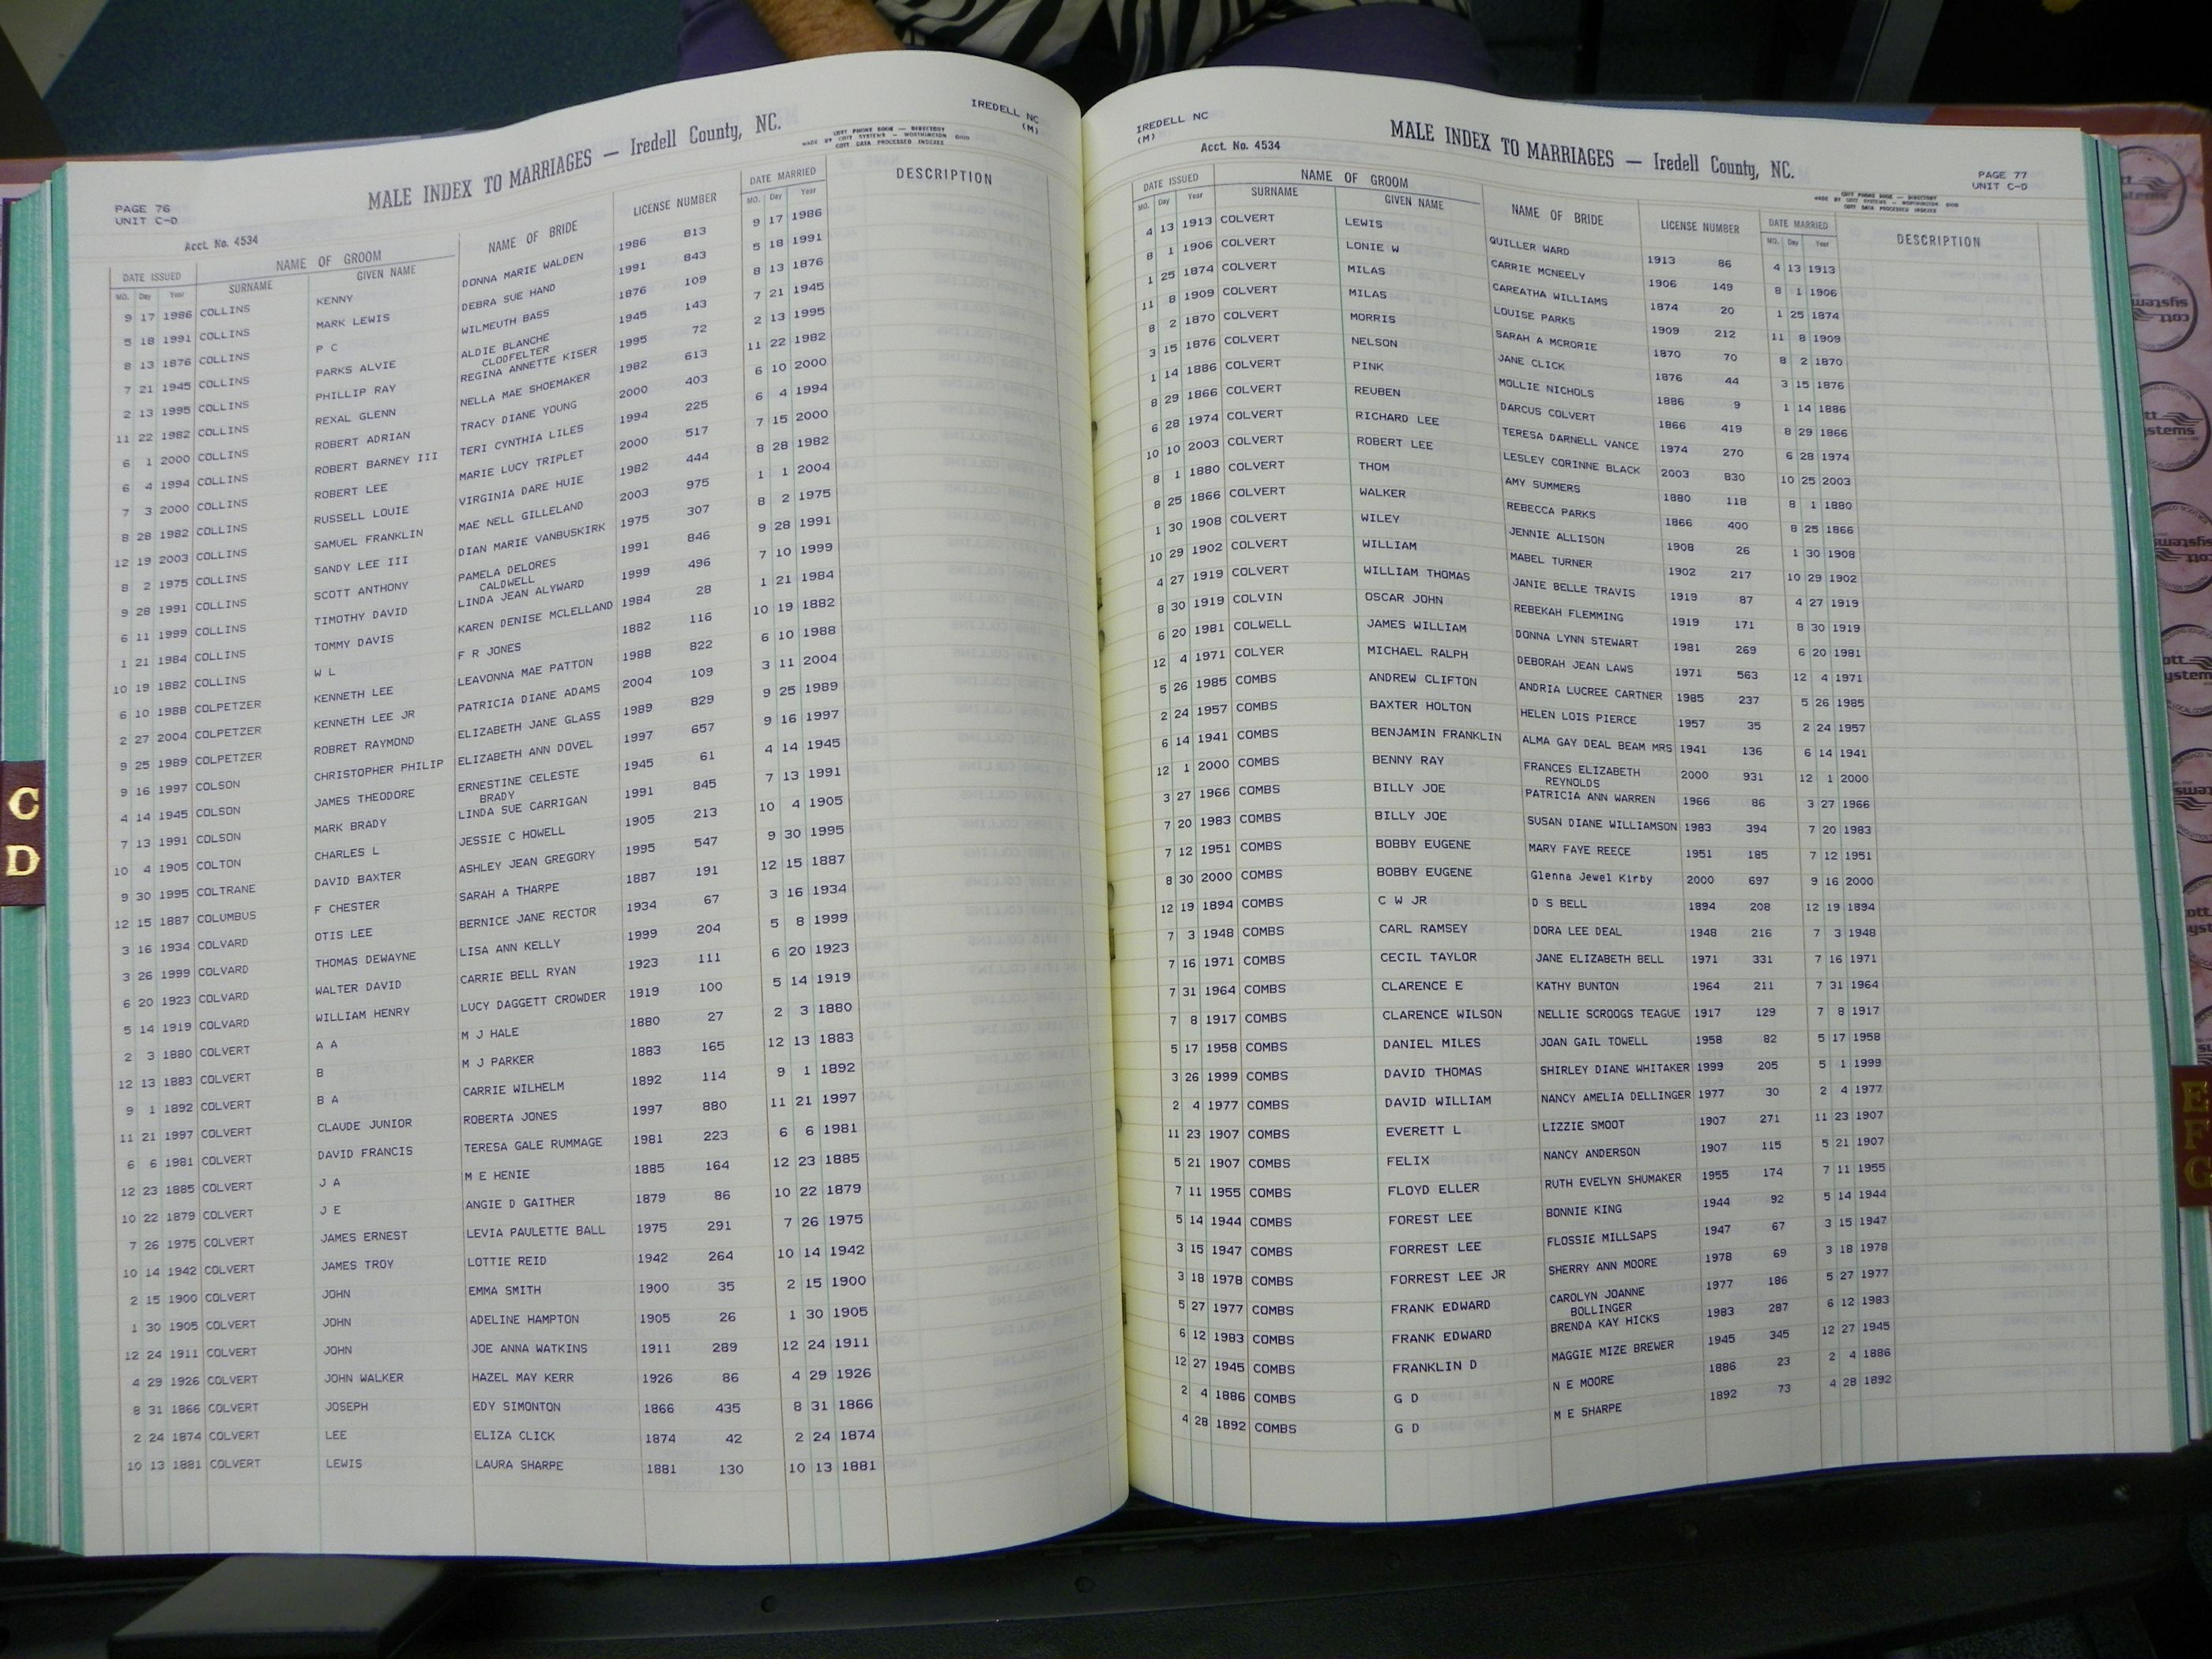 IREDELL NC
(M)
MALE INDEX TO MARRIAGES — Iredell County, NC.
COTT PHONE BOOK — DIRECTORY
MADE BY COTT SYSTEMS — WORTHINGTON OHIO
COTT DATA PROCESSED INDEXES
PAGE 76
UNIT C-D
Acct. No. 4534
DATE ISSUED NAME OF GROOM NAME OF BRIDE LICENSE NUMBER DATE MARRIED DESCRIPTION
MO. Day Year SURNAME GIVEN NAME MO. Day Year
9 17 1986 COLLINS KENNY DONNA MARIE WALDEN 1986 813 9 17 1986
5 18 1991 COLLINS MARK LEWIS DEBRA SUE HAND 1991 843 5 18 1991
8 13 1876 COLLINS P C WILMEUTH BASS 1876 109 8 13 1876
7 21 1945 COLLINS PARKS ALVIE ALDIE BLANCHE 1945 143 7 21 1945
CLODFELTER
2 13 1995 COLLINS PHILLIP RAY REGINA ANNETTE KISER 1995 72 2 13 1995
11 22 1982 COLLINS REXAL GLENN NELLA MAE SHOEMAKER 1982 613 11 22 1982
6 1 2000 COLLINS ROBERT ADRIAN TRACY DIANE YOUNG 2000 403 6 10 2000
6 4 1994 COLLINS ROBERT BARNEY III TERI CYNTHIA LILES 1994 225 6 4 1994
7 3 2000 COLLINS ROBERT LEE MARIE LUCY TRIPLET 2000 517 7 15 2000
8 28 1982 COLLINS RUSSELL LOUIE VIRGINIA DARE HUIE 1982 444 8 28 1982
12 19 2003 COLLINS SAMUEL FRANKLIN MAE NELL GILLELAND 2003 975 1 1 2004
8 2 1975 COLLINS SANDY LEE III DIAN MARIE VANBUSKIRK 1975 307 8 2 1975
9 28 1991 COLLINS SCOTT ANTHONY PAMELA DELORES 1991 846 9 28 1991
CALDWELL
6 11 1999 COLLINS TIMOTHY DAVID LINDA JEAN ALYWARD 1999 496 7 10 1999
1 21 1984 COLLINS TOMMY DAVIS KAREN DENISE MCLELLAND 1984 28 1 21 1984
10 19 1882 COLLINS W L F R JONES 1882 116 10 19 1882
6 10 1988 COLPETZER KENNETH LEE LEAVONNA MAE PATTON 1988 822 6 10 1988
2 27 2004 COLPETZER KENNETH LEE JR PATRICIA DIANE ADAMS 2004 109 3 11 2004
9 25 1989 COLPETZER ROBRET RAYMOND ELIZABETH JANE GLASS 1989 829 9 25 1989
9 16 1997 COLSON CHRISTOPHER PHILIP ELIZABETH ANN DOVEL 1997 657 9 16 1997
4 14 1945 COLSON JAMES THEODORE ERNESTINE CELESTE 1945 61 4 14 1945
BRADY
7 13 1991 COLSON MARK BRADY LINDA SUE CARRIGAN 1991 845 7 13 1991
10 4 1905 COLTON CHARLES L JESSIE C HOWELL 1905 213 10 4 1905
9 30 1995 COLTRANE DAVID BAXTER ASHLEY JEAN GREGORY 1995 547 9 30 1995
12 15 1887 COLUMBUS F CHESTER SARAH A THARPE 1887 191 12 15 1887
3 16 1934 COLVARD OTIS LEE BERNICE JANE RECTOR 1934 67 3 16 1934
3 26 1999 COLVARD THOMAS DEWAYNE LISA ANN KELLY 1999 204 5 8 1999
6 20 1923 COLVARD WALTER DAVID CARRIE BELL RYAN 1923 111 6 20 1923
5 14 1919 COLVARD WILLIAM HENRY LUCY DAGGETT CROWDER 1919 100 5 14 1919
2 3 1880 COLVERT A A M J HALE 1880 27 2 3 1880
12 13 1883 COLVERT B M J PARKER 1883 165 12 13 1883
9 1 1892 COLVERT B A CARRIE WILHELM 1892 114 9 1 1892
11 21 1997 COLVERT CLAUDE JUNIOR ROBERTA JONES 1997 880 11 21 1997
6 6 1981 COLVERT DAVID FRANCIS TERESA GALE RUMMAGE 1981 223 6 6 1981
12 23 1885 COLVERT J A M E HENIE 1885 164 12 23 1885
10 22 1879 COLVERT J E ANGIE D GAITHER 1879 86 10 22 1879
7 26 1975 COLVERT JAMES ERNEST LEVIA PAULETTE BALL 1975 291 7 26 1975
10 14 1942 COLVERT JAMES TROY LOTTIE REID 1942 264 10 14 1942
2 15 1900 COLVERT JOHN EMMA SMITH 1900 35 2 15 1900
1 30 1905 COLVERT JOHN ADELINE HAMPTON 1905 26 1 30 1905
12 24 1911 COLVERT JOHN JOE ANNA WATKINS 1911 289 12 24 1911
4 29 1926 COLVERT JOHN WALKER HAZEL MAY KERR 1926 86 4 29 1926
8 31 1866 COLVERT JOSEPH EDY SIMONTON 1866 435 8 31 1866
2 24 1874 COLVERT LEE ELIZA CLICK 1874 42 2 24 1874
10 13 1881 COLVERT LEWIS LAURA SHARPE 1881 130 10 13 1881
C
D
IREDELL NC
(M)
Acct. No. 4534
MALE INDEX TO MARRIAGES — Iredell County, NC.
COTT PHONE BOOK — DIRECTORY
MADE BY COTT SYSTEMS — WORTHINGTON OHIO
COTT DATA PROCESSED INDEXES
PAGE 77
UNIT C-D
DATE ISSUED NAME OF GROOM NAME OF BRIDE LICENSE NUMBER DATE MARRIED DESCRIPTION
MO. Day Year SURNAME GIVEN NAME MO. Day Year
4 13 1913 COLVERT LEWIS QUILLER WARD 1913 86 4 13 1913
8 1 1906 COLVERT LONIE W CARRIE MCNEELY 1906 149 8 1 1906
1 25 1874 COLVERT MILAS CAREATHA WILLIAMS 1874 20 1 25 1874
11 8 1909 COLVERT MILAS LOUISE PARKS 1909 212 11 8 1909
8 2 1870 COLVERT MORRIS SARAH A MCRORIE 1870 70 8 2 1870
3 15 1876 COLVERT NELSON JANE CLICK 1876 44 3 15 1876
1 14 1886 COLVERT PINK MOLLIE NICHOLS 1886 9 1 14 1886
8 29 1866 COLVERT REUBEN DARCUS COLVERT 1866 419 8 29 1866
6 28 1974 COLVERT RICHARD LEE TERESA DARNELL VANCE 1974 270 6 28 1974
10 10 2003 COLVERT ROBERT LEE LESLEY CORINNE BLACK 2003 830 10 25 2003
8 1 1880 COLVERT THOM AMY SUMMERS 1880 118 8 1 1880
8 25 1866 COLVERT WALKER REBECCA PARKS 1866 400 8 25 1866
1 30 1908 COLVERT WILEY JENNIE ALLISON 1908 26 1 30 1908
10 29 1902 COLVERT WILLIAM MABEL TURNER 1902 217 10 29 1902
4 27 1919 COLVERT WILLIAM THOMAS JANIE BELLE TRAVIS 1919 87 4 27 1919
8 30 1919 COLVIN OSCAR JOHN REBEKAH FLEMMING 1919 171 8 30 1919
6 20 1981 COLWELL JAMES WILLIAM DONNA LYNN STEWART 1981 269 6 20 1981
12 4 1971 COLYER MICHAEL RALPH DEBORAH JEAN LAWS 1971 563 12 4 1971
5 26 1985 COMBS ANDREW CLIFTON ANDRIA LUCREE CARTNER 1985 237 5 26 1985
2 24 1957 COMBS BAXTER HOLTON HELEN LOIS PIERCE 1957 35 2 24 1957
6 14 1941 COMBS BENJAMIN FRANKLIN ALMA GAY DEAL BEAM MRS 1941 136 6 14 1941
12 1 2000 COMBS BENNY RAY FRANCES ELIZABETH 2000 931 12 1 2000
REYNOLDS
3 27 1966 COMBS BILLY JOE PATRICIA ANN WARREN 1966 86 3 27 1966
7 20 1983 COMBS BILLY JOE SUSAN DIANE WILLIAMSON 1983 394 7 20 1983
7 12 1951 COMBS BOBBY EUGENE MARY FAYE REECE 1951 185 7 12 1951
8 30 2000 COMBS BOBBY EUGENE Glenna Jewel Kirby 2000 697 9 16 2000
12 19 1894 COMBS C W JR D S BELL 1894 208 12 19 1894
7 3 1948 COMBS CARL RAMSEY DORA LEE DEAL 1948 216 7 3 1948
7 16 1971 COMBS CECIL TAYLOR JANE ELIZABETH BELL 1971 331 7 16 1971
7 31 1964 COMBS CLARENCE E KATHY BUNTON 1964 211 7 31 1964
7 8 1917 COMBS CLARENCE WILSON NELLIE SCROOGS TEAGUE 1917 129 7 8 1917
5 17 1958 COMBS DANIEL MILES JOAN GAIL TOWELL 1958 82 5 17 1958
3 26 1999 COMBS DAVID THOMAS SHIRLEY DIANE WHITAKER 1999 205 5 1 1999
2 4 1977 COMBS DAVID WILLIAM NANCY AMELIA DELLINGER 1977 30 2 4 1977
11 23 1907 COMBS EVERETT L LIZZIE SMOOT 1907 271 11 23 1907
5 21 1907 COMBS FELIX NANCY ANDERSON 1907 115 5 21 1907
7 11 1955 COMBS FLOYD ELLER RUTH EVELYN SHUMAKER 1955 174 7 11 1955
5 14 1944 COMBS FOREST LEE BONNIE KING 1944 92 5 14 1944
3 15 1947 COMBS FORREST LEE FLOSSIE MILLSAPS 1947 67 3 15 1947
3 18 1978 COMBS FORREST LEE JR SHERRY ANN MOORE 1978 69 3 18 1978
5 27 1977 COMBS FRANK EDWARD CAROLYN JOANNE 1977 186 5 27 1977
BOLLINGER
6 12 1983 COMBS FRANK EDWARD BRENDA KAY HICKS 1983 287 6 12 1983
12 27 1945 COMBS FRANKLIN D MAGGIE MIZE BREWER 1945 345 12 27 1945
2 4 1886 COMBS G D N E MOORE 1886 23 2 4 1886
4 28 1892 COMBS G D M E SHARPE 1892 73 4 28 1892
E
F
G